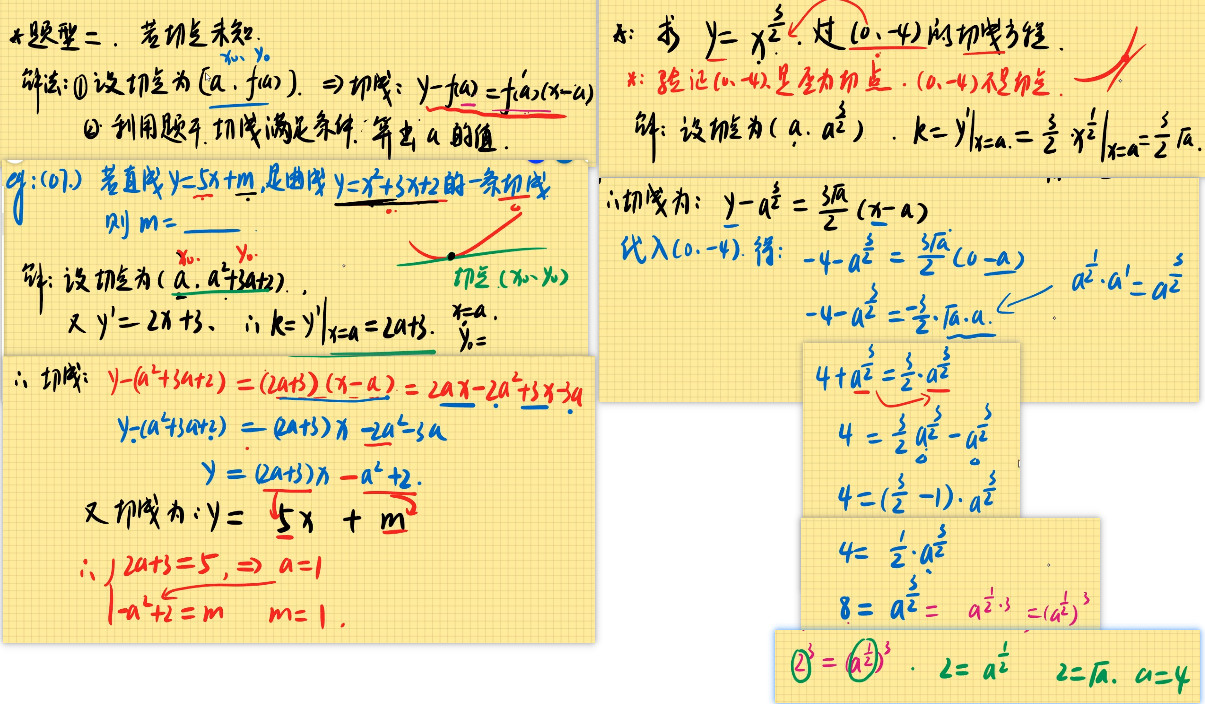 *题型二. 若切点未知.
x₀, y₀
解法: ① 设切点为 (a, f(a)). ⇒ 切线: y-f(a)=f'(a)(x-a)
② 利用题干, 切线满足条件, 算出 a 的值.
eg: (07.) 若直线 y=5x+m, 是曲线 y=x²+3x+2 的一条切线
则 m=____
x₀. y₀.
解: 设切点为 (a, a²+3a+2).
切点 (x₀, y₀)
又 y'=2x+3, ∴ k=y'|x=a=2a+3. x=a.
y₀=
∴ 切线: y-(a²+3a+2)=(2a+3)(x-a)=2ax-2a²+3x-3a
y-(a²+3a+2)=(2a+3)x-2a²-3a
y=(2a+3)x-a²+2.
又切线为: y= 5x + m
∴ { 2a+3=5, ⇒ a=1
-a²+2=m m=1.
求 y=x^{3/2}. 过 (0, -4) 的切线方程.
*: 验证 (0, -4) 是否为切点. (0, -4) 不是切点.
解: 设切点为 (a, a^{3/2}). k=y'|x=a=3/2 x^{1/2}|x=a=3/2 √a.
∴ 切线为: y-a^{3/2}=3√a/2 (x-a)
代入 (0, -4). 得: -4-a^{3/2}=3√a/2 (0-a)
a^{1/2}·a¹=a^{3/2}
-4-a^{3/2}=-3/2·√a·a.
4+a^{3/2}=3/2·a^{3/2}
4=3/2 a^{3/2}-a^{3/2}
4=(3/2-1)·a^{3/2}
4=1/2·a^{3/2}
8=a^{3/2}=a^{1/2·3}=(a^{1/2})³
2³=(a^{1/2})³. 2=a^{1/2} 2=√a. a=4